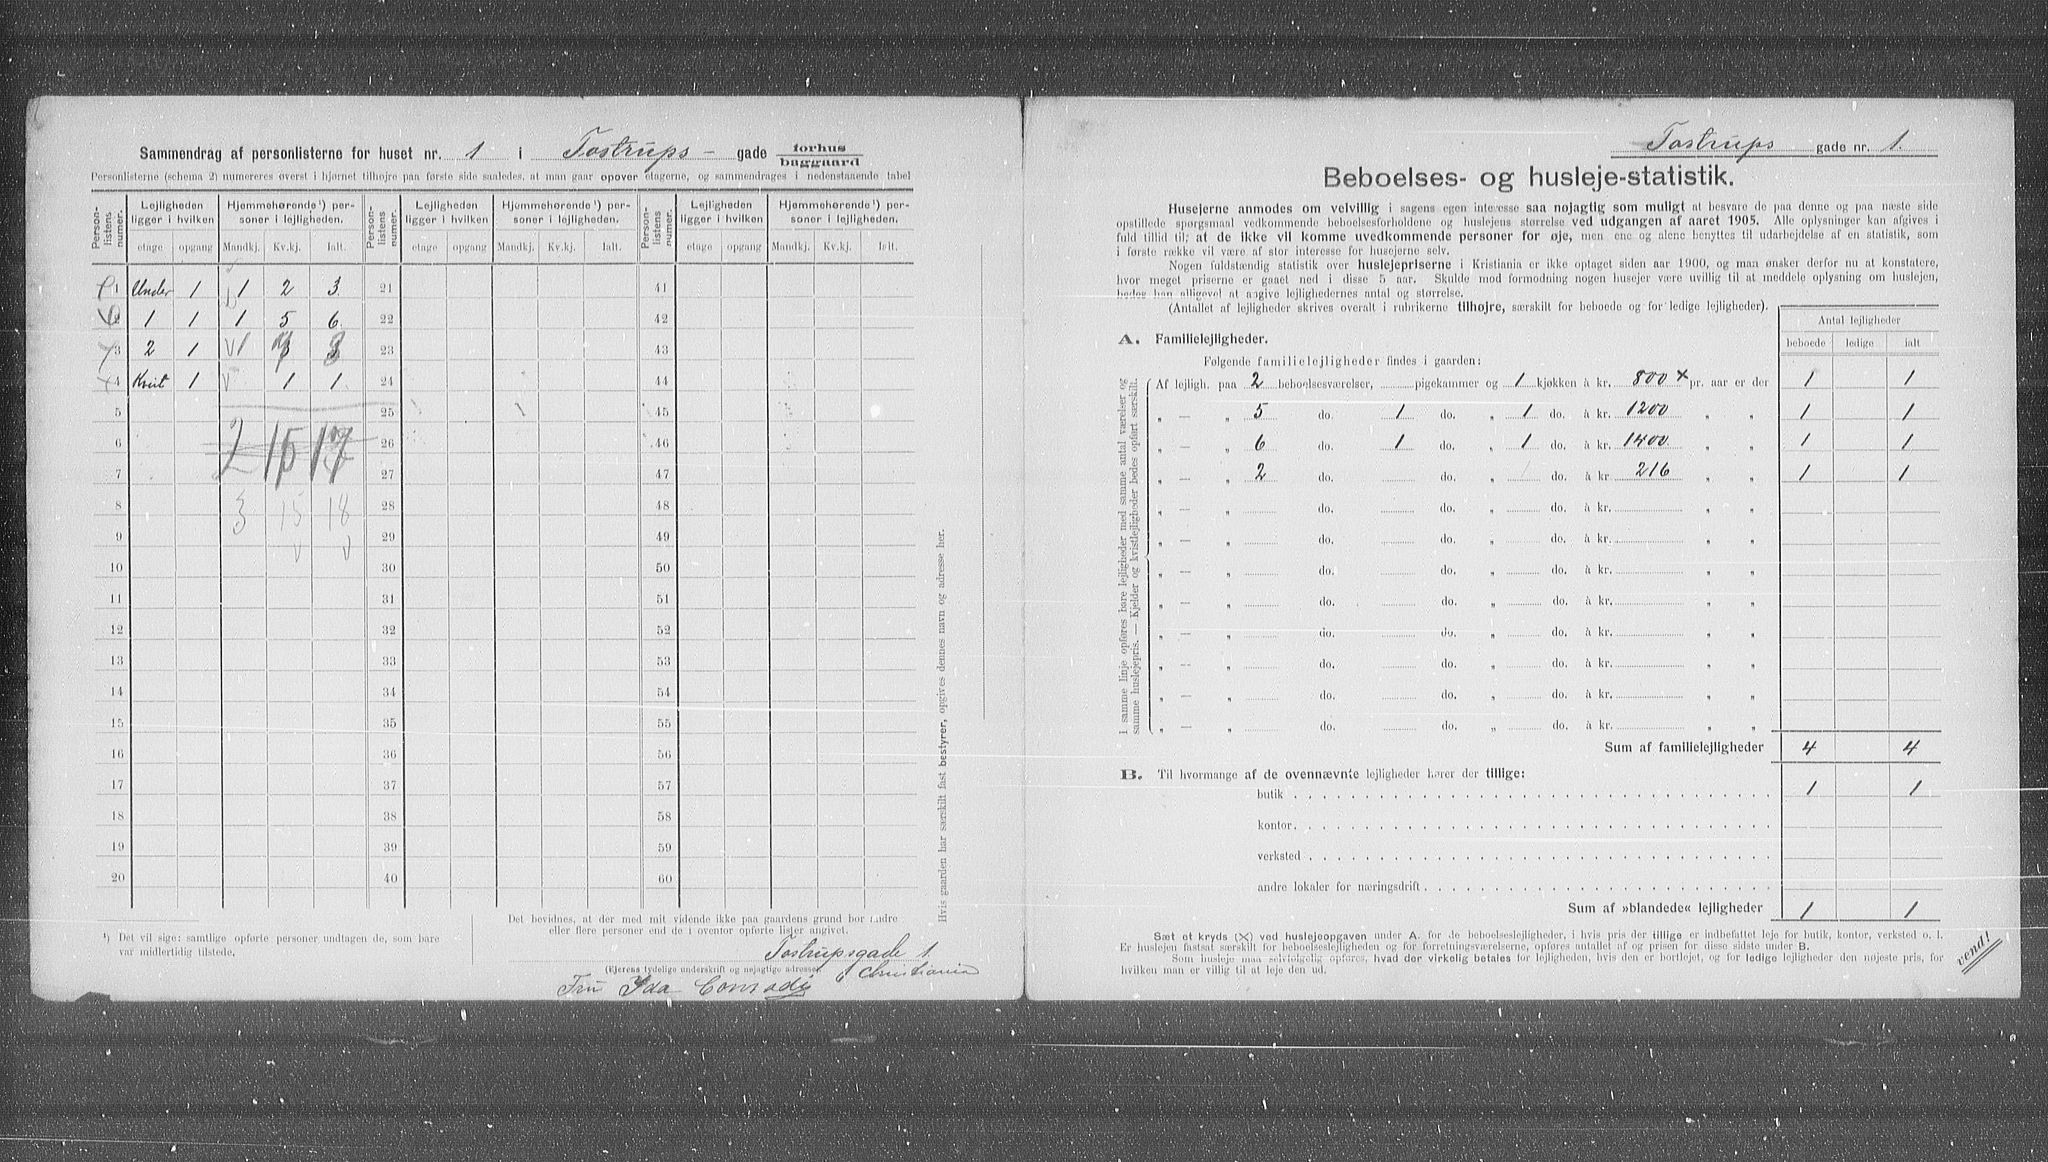 Sammendrag af personlisterne for huset nr. 1 i Tostrups- gade forhus baggaard
Personlisterne (schema 2) numereres øverst i hjørnet tilhøjre paa første side saaledes, at man gaar opover etagerne, og sammendrages i nedenstaaende tabel
Person-listens numer. Lejligheden ligger i hvilken Hjemmehørende ¹) personer i lejligheden. Person-listens numer. Lejligheden ligger i hvilken Hjemmehørende ¹) personer i lejligheden. Person-listens numer. Lejligheden ligger i hvilken Hjemmehørende ¹) personer i lejligheden.
etage opgang Mandkj. Kv.kj. Ialt. etage opgang Mandkj. Kv.kj. Ialt. etage opgang Mandkj. Kv.kj. Ialt.
1 Under 1 1 2 3 21 41
2 1 1 1 5 6 22 42
3 2 1 1 23 43
4 Kvist 1 1 1 24 44
5 25 45
6 2 15 17 26 46
7 27 47
8 3 15 18 28 48
9 29 49
10 30 50
11 31 51
12 32 52
13 33 53
14 34 54
15 35 55
16 36 56
17 37 57
18 38 58
19 39 59
20 40 60
¹) Det vil sige: samtlige opførte personer undtagen de, som bare
var midlertidig tilstede.
Det bevidnes, at der med mit vidende ikke paa gaardens grund bor andre
eller flere personer end de i oventor opførte lister angivet.
Tostrupsgade 1
(Ejerens tydelige underskrift og nøjagtige adresse) Christiania
Fru Ida Conrady
Hvis gaarden har særskilt fast bestyrer, opgives dennes navn og adresse her.
Tostrups gade nr. 1.
Beboelses- og husleje-statistik.
Husejerne anmodes om velvillig i sagens egen interesse saa nøjagtig som muligt at besvare de paa denne og paa næste side
opstillede spørgsmaal vedkommende beboelsesforholdene og huslejens størrelse ved udgangen af aaret 1905. Alle oplysninger kan afgives i
fuld tillid til, at de ikke vil komme uvedkommende personer for øje, men ene og alene benyttes til udarbejdelse af en statistik, som
i første række vil være af stor interesse for husejerne selv.
Nogen fuldstændig statistik over huslejepriserne i Kristiania er ikke optaget siden aar 1900, og man ønsker derfor nu at konstatere,
hvor meget priserne er gaaet ned i disse 5 aar. Skulde mod formodning nogen husejer være uvillig til at meddele oplysning om huslejen,
bedes han alligevel at angive lejlighedernes antal og størrelse.
(Antallet af lejligheder skrives overalt i rubrikerne tilhøjre, særskilt for beboede og for ledige lejligheder).
Antal lejligheder
beboede ledige ialt
A. Familielejligheder.
Følgende familielejligheder findes i gaarden:
I samme linje opføres bare lejligheder med samme antal værelser og
samme huslejepris. — Kjelder og kvistlejligheder bedes opført særskilt.
Af lejligh. paa 2 beboelsesværelser, pigekammer og 1 kjøkken à kr. 800 × pr. aar er der 1 1
„ — „ 5 do. 1 do. „ 1 do. à kr. 1200 „ „ 1 1
„ — „ 6 do. 1 do. „ 1 do. à kr. 1400 „ „ 1 1
„ — „ 2 do. do. „ do. à kr. 216 „ „ 1 1
„ — „ do. do. „ do. à kr. „ „
„ — „ do. do. „ do. à kr. „ „
„ — „ do. do. „ do. à kr. „ „
„ — „ do. do. „ do. à kr. „ „
„ — „ do. do. „ do. à kr. „ „
„ — „ do. do. „ do. à kr. „ „
„ — „ do. do. „ do. à kr. „ „
„ — „ do. do. „ do. à kr. „ „
Sum af familielejligheder 4 4
B. Til hvormange af de ovennævnte lejligheder hører der tillige:
butik 1 1
kontor
verksted
andre lokaler for næringsdrift
Sum af »blandede« lejligheder 1 1
Sæt et kryds (×) ved huslejeopgaven under A. for de beboelseslejligheder, i hvis pris der tillige er indbefattet leje for butik, kontor, verksted o. l.
Er huslejen fastsat særskilt for beboelseslejligheden og for forretningsværelserne, opføres antallet af og prisen for disse sidste under B.
Som husleje maa selvfølgelig opføres, hvad der virkelig betales for lejligheden, hvis den er bortlejet, og for ledige lejligheder den nøjeste pris, for
hvilken man er villig til at leje den ud.
vend!